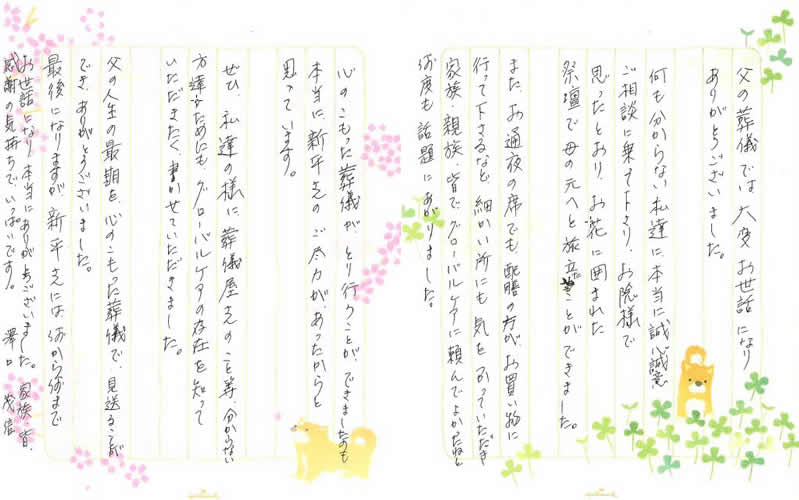 父の葬儀では大変お世話になり
ありがとうございました。
何も分からない私達に、本当に誠心誠意
ご相談に乗って下さり、お陰様で
思ったとおり、お花に囲まれた
祭壇で母の元へと旅立つことができました。
また、お通夜の席でも配膳の方が、お買い物に
行って下さるなど、細かい所にも気をつかっていただき
家族、親族、皆でグローバルケアに頼んでよかったねと
何度も話題にあがりました。
心のこもった葬儀が、とり行うことが、できましたのも
本当に、新平さんのご尽力が、あったからと
思っています。
ぜひ、私達の様に、葬儀屋さんのこと等、分からない
方達のためにも、グローバルケアの存在を知って
いただきたく、書かせていただきました。
父の人生の最期を、心のこもった葬儀で、見送ることが
でき、ありがとうございました。
最後になりますが、新平さんには、何から何まで
お世話になり、本当にありがとうございました。家族一同、
感謝の気持ちでいっぱいです。 澤口